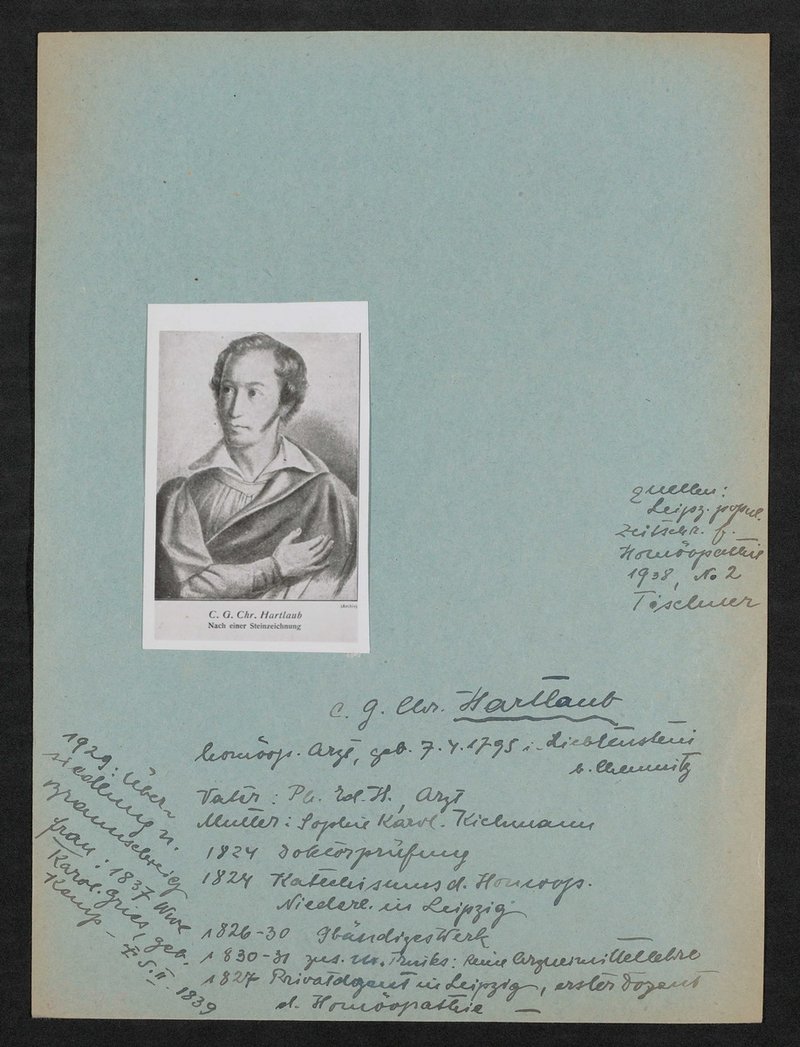 (Archiv)
C. G. Chr. Hartlaub
Nach einer Steinzeichnung
Quellen:
Leipz. popul.
Zeitschr. f.
Homöopathie
1938, No 2
Tischner
C. G. Chr. Hartlaub
homöop. Arzt, geb. 7.4.1795 i. Liechtenstein
b. Chemnitz
Vater: H., Arzt
Mutter: Sophie Karol. Richmann
1824 Doktorprüfung
1824 Katechismus d. Homöop.
Niederl. in Leipzig
1826-30 9bändiges Werk
1830-31 zus. m. Trinks: reine Arzneimittellehre
1827 Privatdozent in Leipzig, erster Dozent
d. Homöopathie —
1929: Über-
siedlung n.
Braunschweig
Frau: 1837 Wwe
Karol. Gries, geb.
Kemp - † 5.II.1839